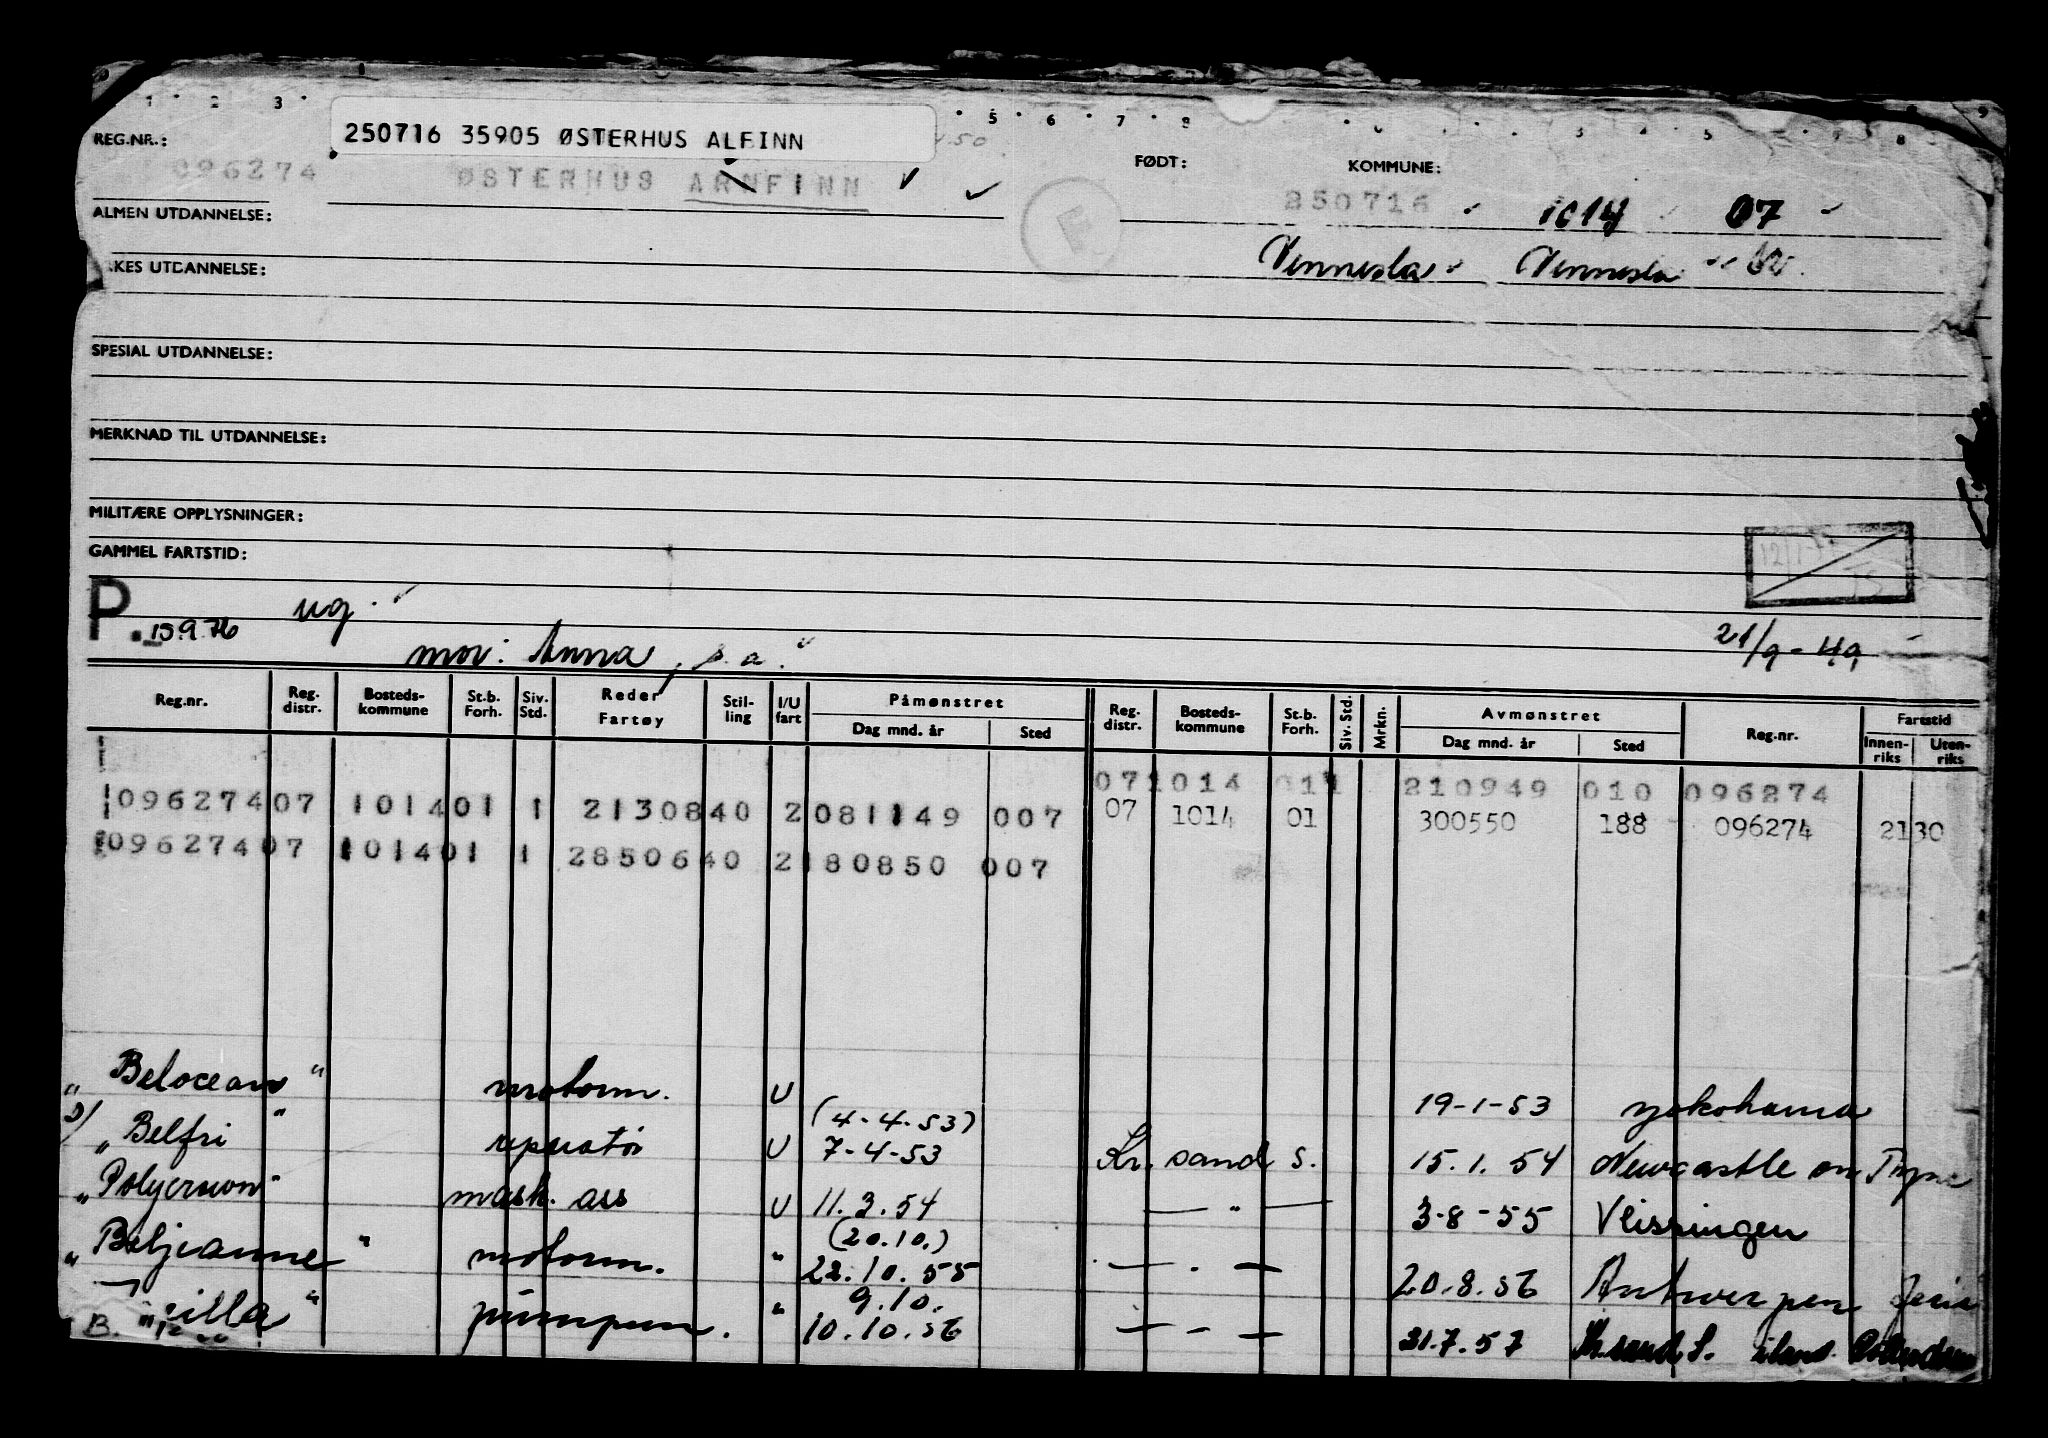 1 2 3 5 6 7 8
REG.NR.:
250716 35905 ØSTERHUS ALFINN
096274 ØSTERHUS ARNFINN
FØDT:
KOMMUNE:
250716 1014 07
ALMEN UTDANNELSE:
Vennesla Vennesla
KES UTDANNELSE:
SPESIAL UTDANNELSE:
MERKNAD TIL UTDANNELSE:
MILITÆRE OPPLYSNINGER:
GAMMEL FARTSTID:
P. 15.9.76 ug.
mor: Anna, s.a.
21/9-49
Reg.nr. Reg. distr. Bosteds-kommune St.b. Forh. Siv. Std. Reder Fartøy Stil-ling I/U fart Påmønstret Dag mnd. år Sted Reg. distr. Bosteds-kommune St.b. Forh. Siv. Std. Mrkn. Avmønstret Dag mnd. år Sted Reg.nr. Fartstid Innen-riks Uten-riks
071014 011 210949 010 096274
09627407 101401 1 2130840 2 081149 007 07 1014 01 300550 188 096274 2130
09627407 101401 1 2850640 2180850 007
"Belocean" motorm. U 19-1-53 Yokohama
2/ "Belfri" reparatør U (4-4-53) 7-4-53 Kr. sand S. 15.1.54 Newcastle on Tyne
"Polycrown" mask. ass U 11.3.54 — " — 3-8-55 Vlissingen
"Beljeanne" motorm. " (20.10.) 22.10.55 — " — 20.8.56 Antwerpen
illa" pumpem. " 9.10. 10.10.56 — " — 31.7.57 Kr.sand S.
B.